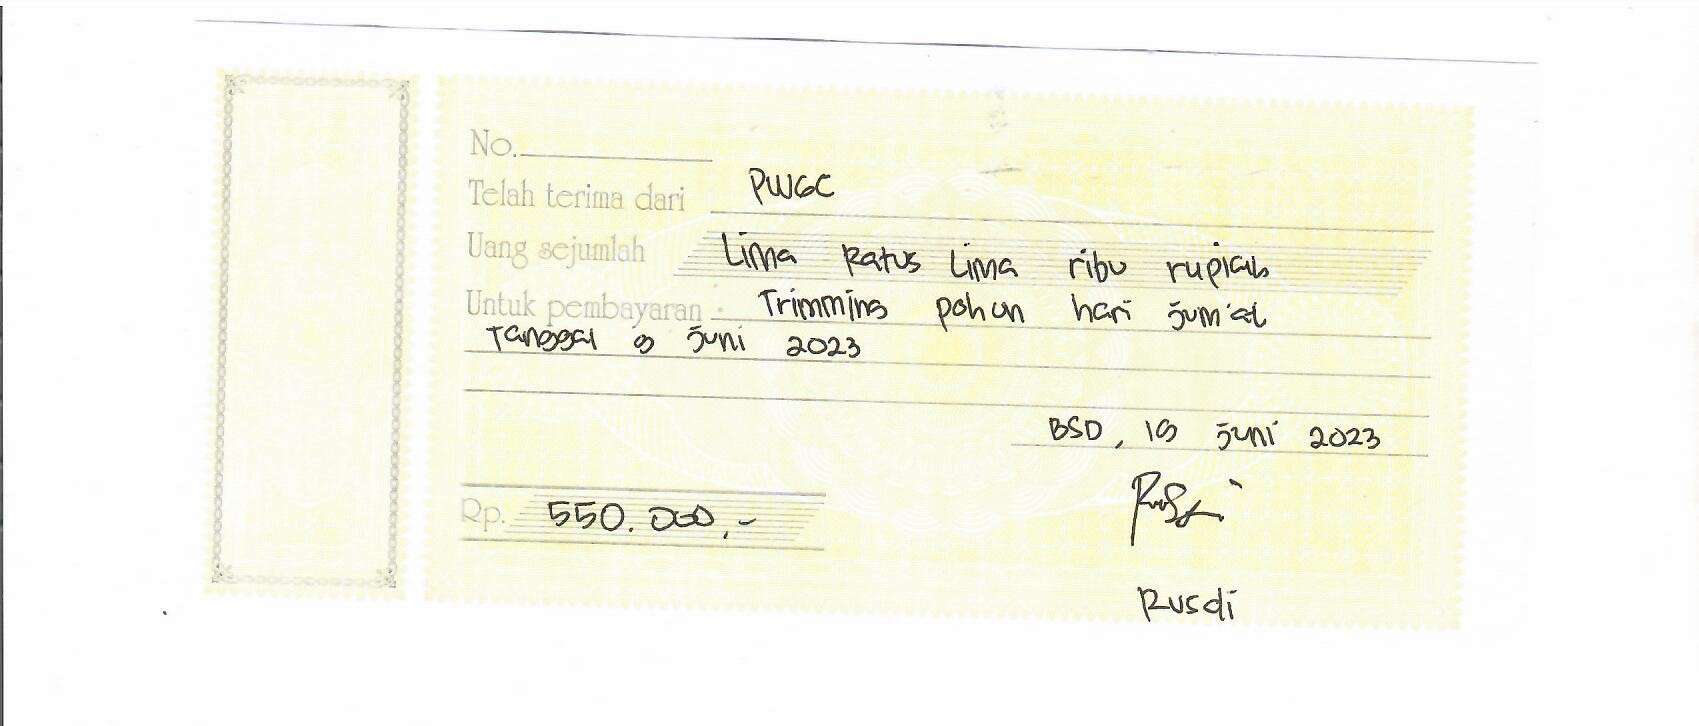 No.
Telah terima dari PWGC
Uang sejumlah Lima Ratus Lima ribu rupiah
Untuk pembayaran : Trimming pohon hari jum'at
Tanggal 9 juni 2023
BSD, 19 juni 2023
Rp. 550.000,-
Rusdi